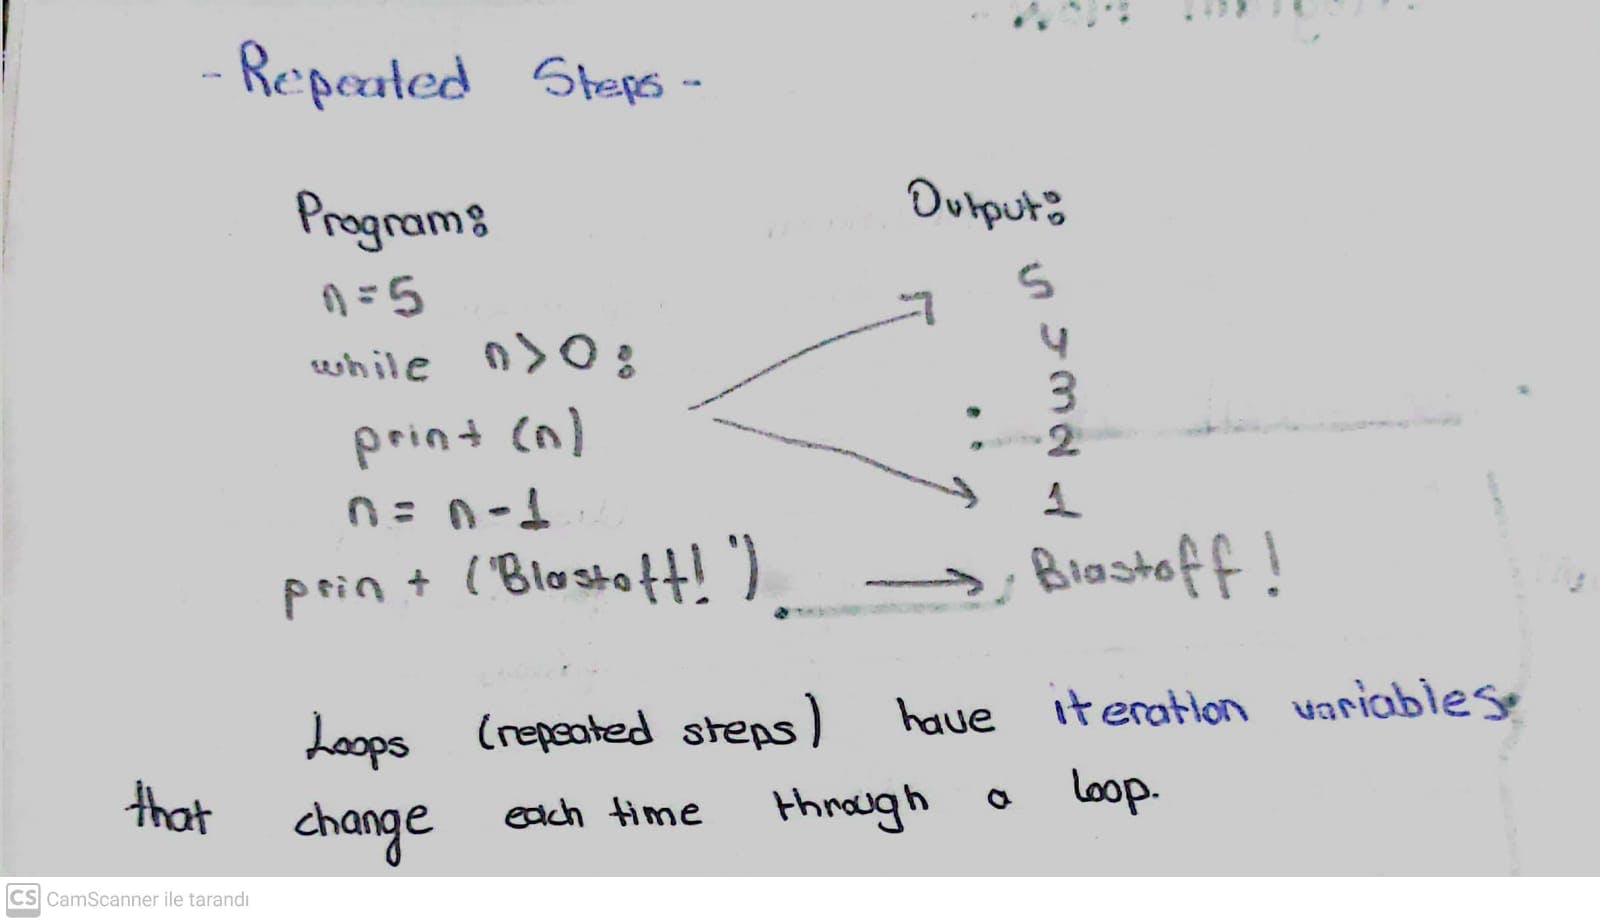 - Repeated Steps -
Program:
n=5
while n>0:
print (n)
n = n-1
print ('Blastoff! ')
Output:
5
4
3
2
1
Blastoff!
Loops (repeated steps) have iteration variables
that change each time through a loop.
CS CamScanner ile tarandı